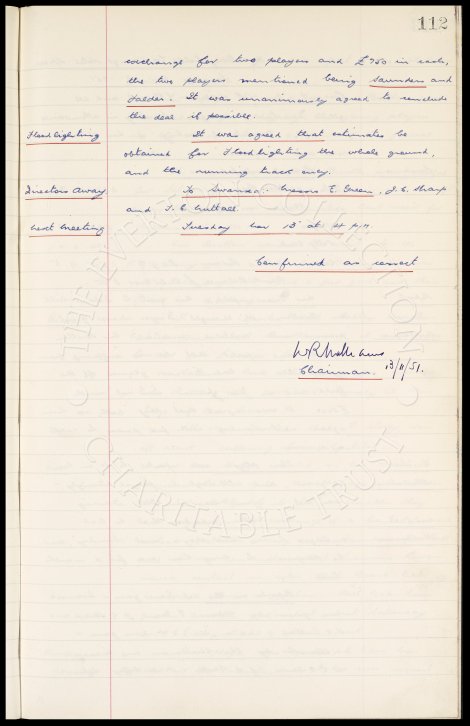 112
exchange for two players and £750 in cash,
the two players mentioned being Saunders and
Falder. It was unanimously agreed to conclude
the deal if possible.
Floodlighting It was agreed that estimates be
obtained for Floodlighting the whole ground,
and the running track only.
Directors Away To Swansea. Messrs E. Green, J. C. Sharp
and T. C. Nuttall.
Next Meeting Tuesday Nov 13 at 4 p.m.
Confirmed as correct
Chairman. 13/11/51.
THE EVERTON COLLECTION
CHARITABLE TRUST